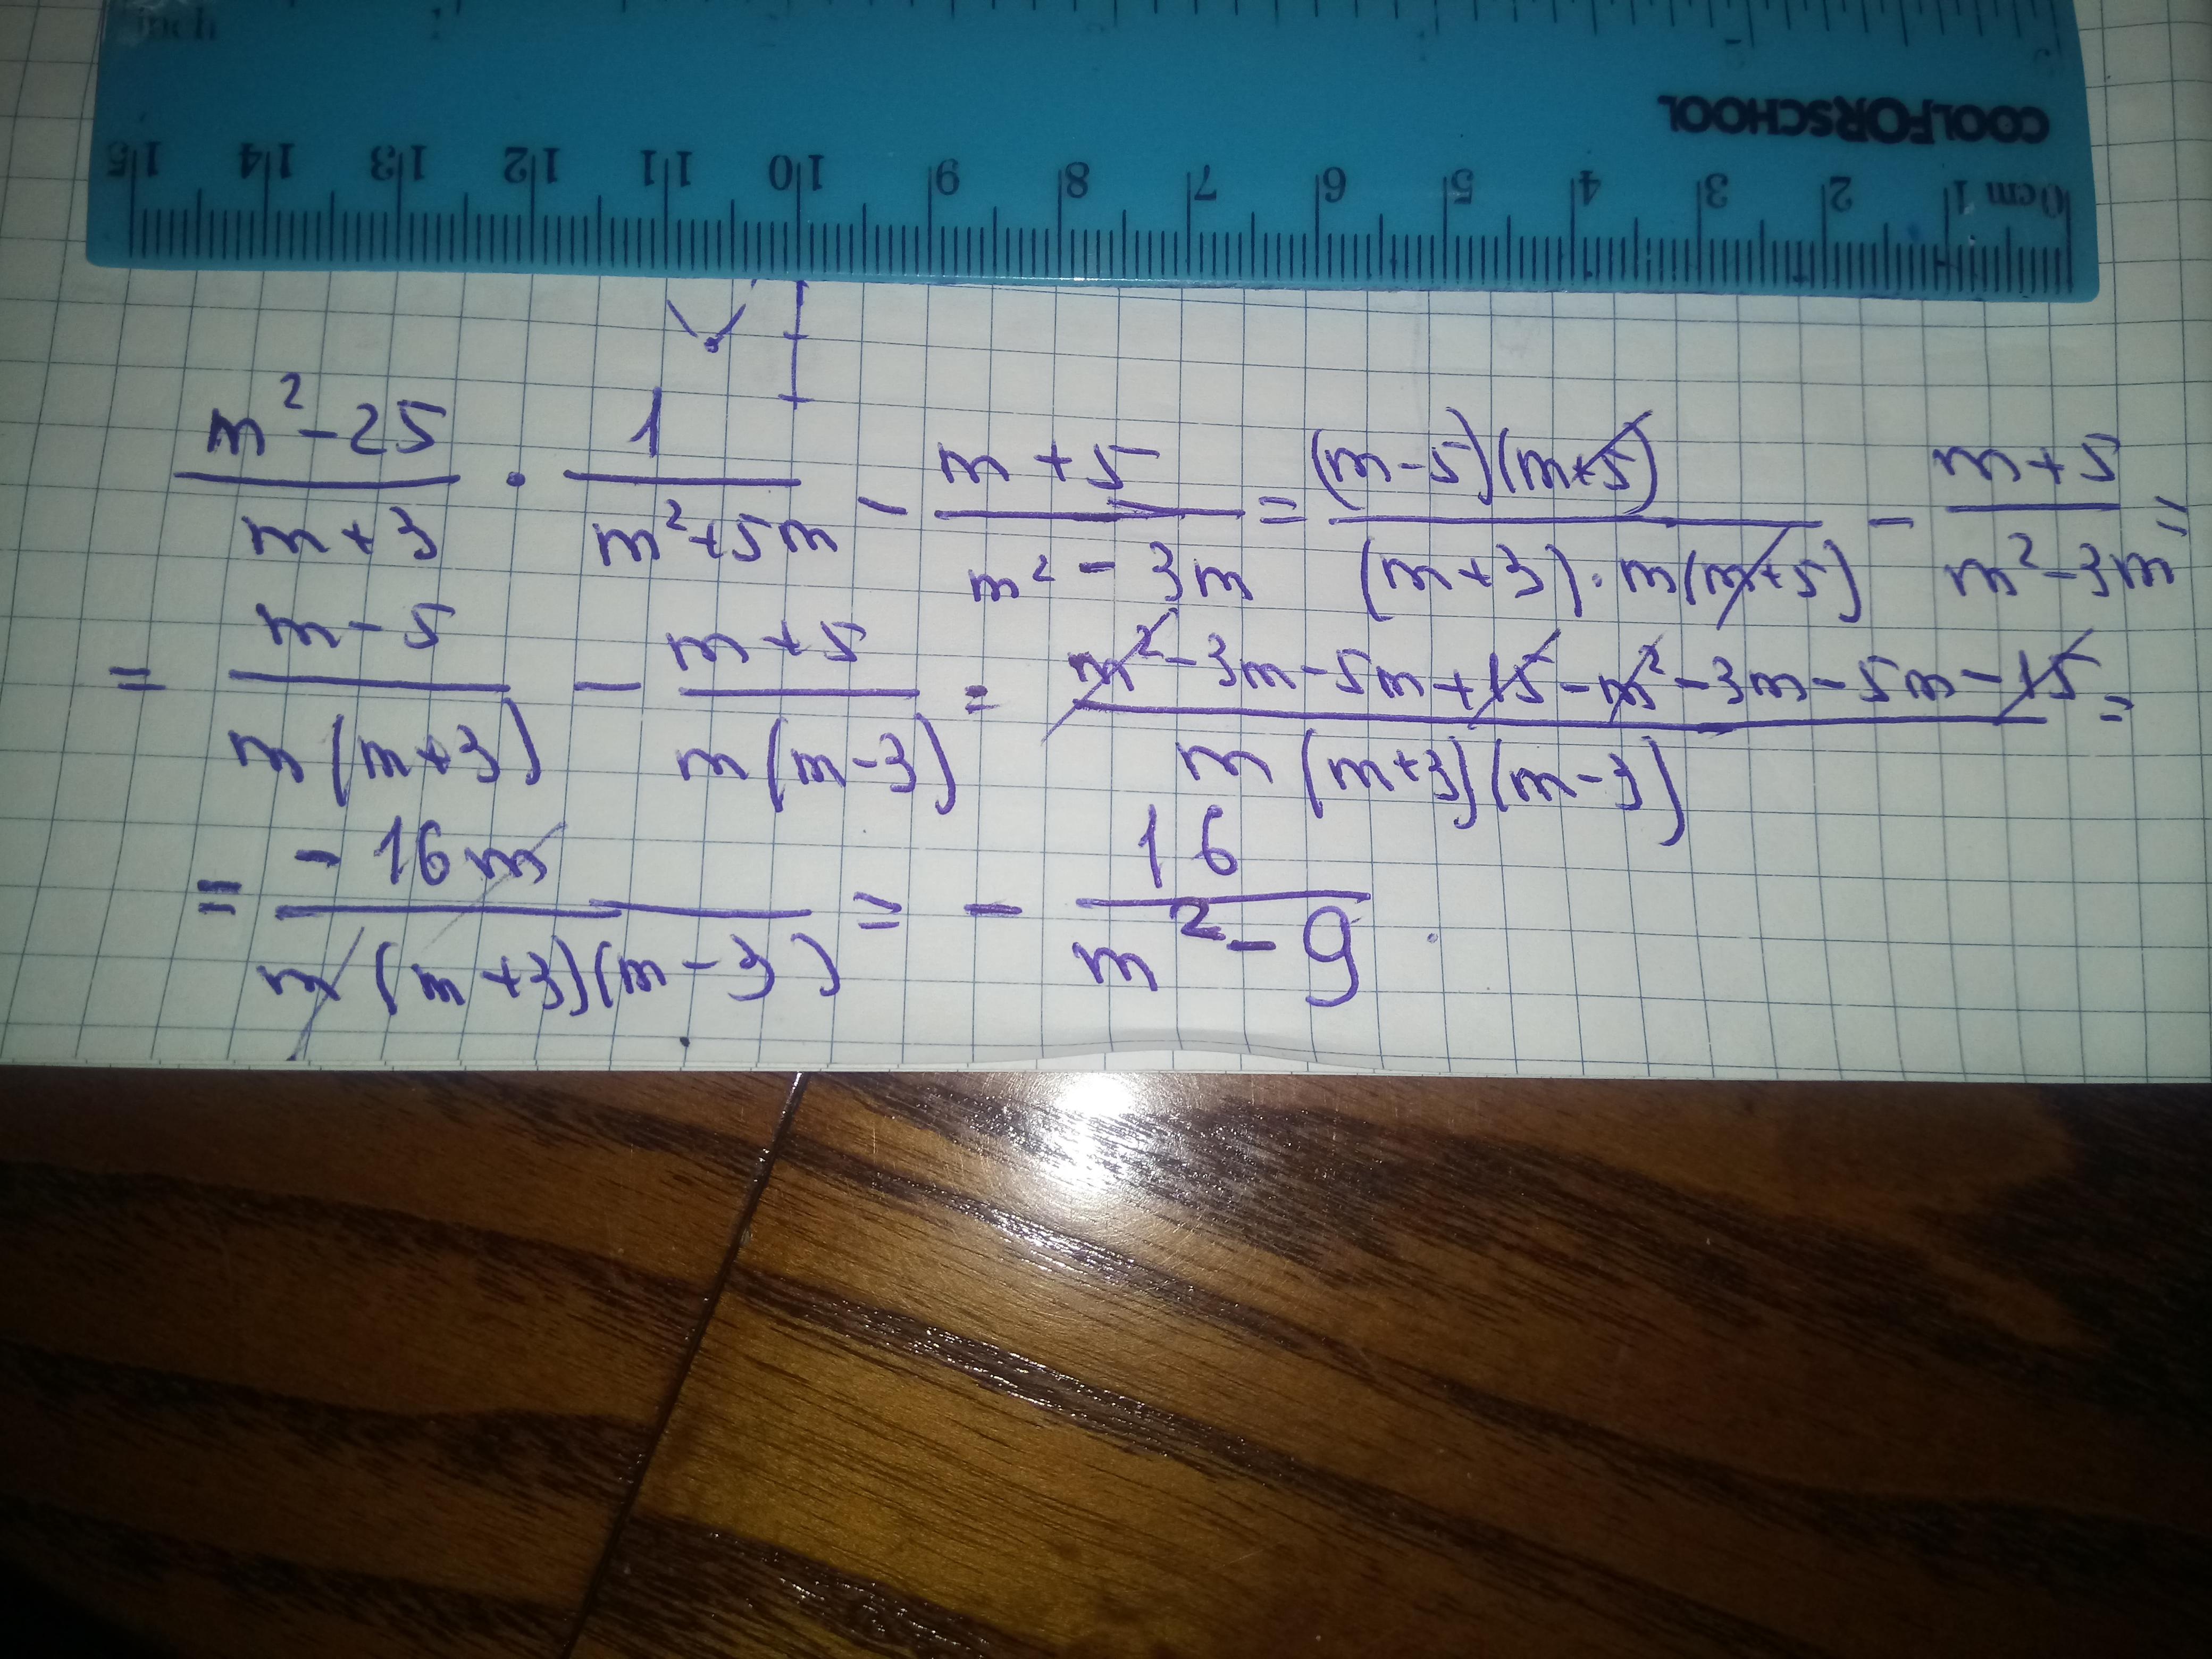 inch 1 2 3
COOLFORSCHOOL
0cm 1 2 3 4 5 6 7 8 9 10 11 12 13 14 15
(m²-25)/(m+3) · 1/(m²+5m) - (m+5)/(m²-3m) = (m-5)(m+5)/((m+3)·m(m+5)) - (m+5)/(m²-3m) =
= (m-5)/(m(m+3)) - (m+5)/(m(m-3)) = (m²-3m-5m+15-m²-3m-5m-15)/(m(m+3)(m-3)) =
= -16m/(m(m+3)(m-3)) = - 16/(m²-9).